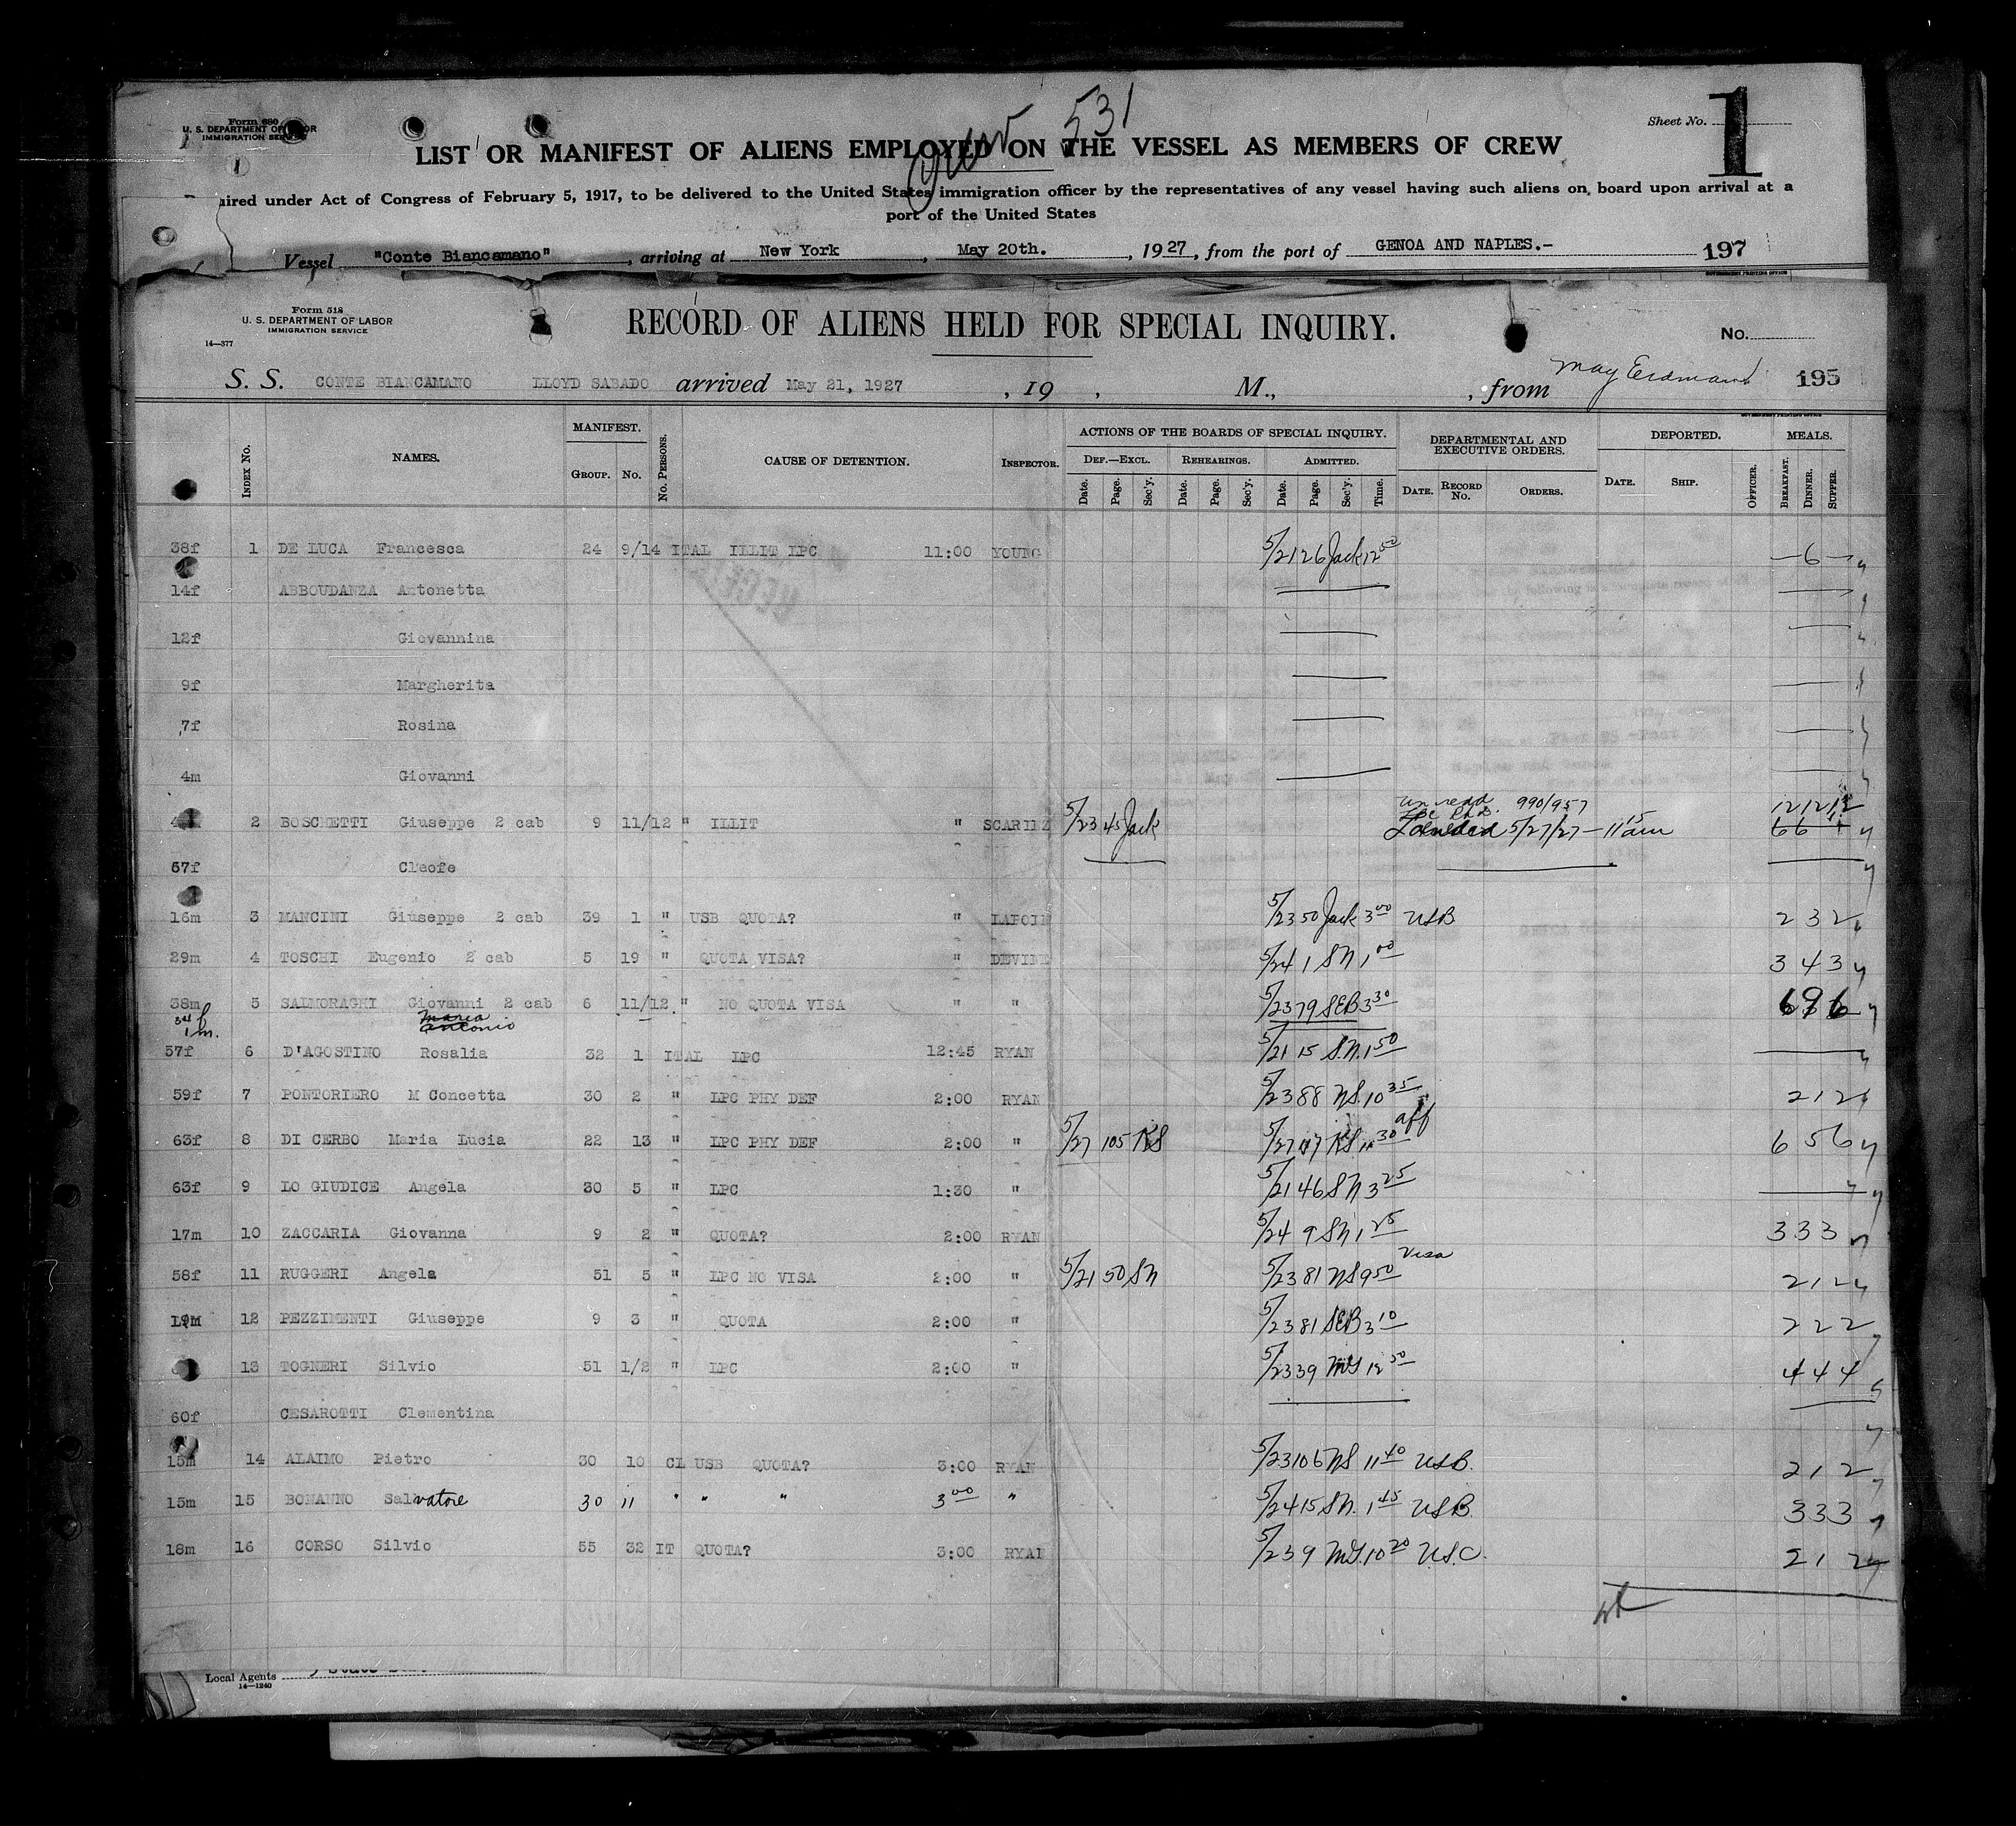 Form 680
U. S. DEPARTMENT OF LABOR
IMMIGRATION SERVICE
Crew 531
Sheet No. 1
LIST OR MANIFEST OF ALIENS EMPLOYED ON THE VESSEL AS MEMBERS OF CREW
ired under Act of Congress of February 5, 1917, to be delivered to the United States immigration officer by the representatives of any vessel having such aliens on board upon arrival at a
port of the United States
Vessel "Conte Biancamano", arriving at New York, May 20th., 1927, from the port of GENOA AND NAPLES.- 197
Form 518
U. S. DEPARTMENT OF LABOR
IMMIGRATION SERVICE
14—377
RECORD OF ALIENS HELD FOR SPECIAL INQUIRY.
No.
S. S. CONTE BIANCAMANO LLOYD SABADO arrived May 21, 1927, 19 , M., , from May Erdmann 195
INDEX NO. NAMES. MANIFEST. GROUP. NO. NO. PERSONS. CAUSE OF DETENTION. INSPECTOR. ACTIONS OF THE BOARDS OF SPECIAL INQUIRY. DEPARTMENTAL AND EXECUTIVE ORDERS. DEPORTED. MEALS.
DEF.—EXCL. REHEARINGS. ADMITTED.
Date. Page. Sec'y. Date. Page. Sec'y. Date. Page. Sec'y. Time. DATE. RECORD No. ORDERS. DATE. SHIP. OFFICER. BREAKFAST. DINNER. SUPPER.
38f 1 DE LUCA Francesca 24 9/14 ITAL ILLIT LPC 11:00 YOUNG 5/21 26 Jack 12 50 — 6 —
14f ABBOUDANZA Antonetta
12f Giovannina
9f Margherita
7f Rosina
4m Giovanni
2 BOSCHETTI Giuseppe 2 cab 9 11/12 " ILLIT " 5/23 45 Jack 990/957 5/27/27 — 11 15 am 12 12 12
57f Cleofe
16m 3 MANCINI Giuseppe 2 cab 39 1 " USB QUOTA? " 5/23 50 Jack 3 00 USB 2 3 2
29m 4 TOSCHI Eugenio 2 cab 5 19 " QUOTA VISA? " DEVINE 5/24 1 SN 1 00 3 4 3
38m 5 SALMORAGHI Giovanni 2 cab 6 11/12 " NO QUOTA VISA " " 5/23 79 SEB 3 30 6 9 6
34 f Maria
1 m. Antonio
57f 6 D'AGOSTINO Rosalia 32 1 ITAL LPC 12:45 RYAN 5/21 15 S.N. 1 50
59f 7 PONTORIERO M Concetta 30 2 " LPC PHY DEF 2:00 RYAN 5/23 88 NS 10 35 2 1 2
63f 8 DI CERBO Maria Lucia 22 13 " LPC PHY DEF 2:00 " 5/27 105 RS 5/27 RS 30 aff 6 5 6
63f 9 LO GIUDICE Angela 30 5 " LPC 1:30 " 5/21 46 SN 3 25
17m 10 ZACCARIA Giovanna 9 2 " QUOTA? 2:00 RYAN 5/24 9 SN 1 25 3 3 3
58f 11 RUGGERI Angela 51 5 " LPC NO VISA 2:00 " 5/21 50 SN 5/23 81 NS 9 50 Visa 2 1 2
19m 12 PEZZIMENTI Giuseppe 9 3 " QUOTA 2:00 " 5/23 81 SEB 3 10 2 2 2
13 TOGNERI Silvio 51 1/2 " LPC 2:00 " 5/23 39 MG 12 50 4 4 4
60f CESAROTTI Clementina
15m 14 ALAIMO Pietro 30 10 CL USB QUOTA? 3:00 RYAN 5/23 106 NS 11 40 USB. 2 1 2
15m 15 BONANNO Salvatore 30 11 " " " 3 00 " 5/24 15 SN. 1 45 USB. 3 3 3
18m 16 CORSO Silvio 55 32 IT QUOTA? 3:00 RYAN 5/23 9 MG. 10 20 U.S.C. 2 1 2
Local Agents
14—1240